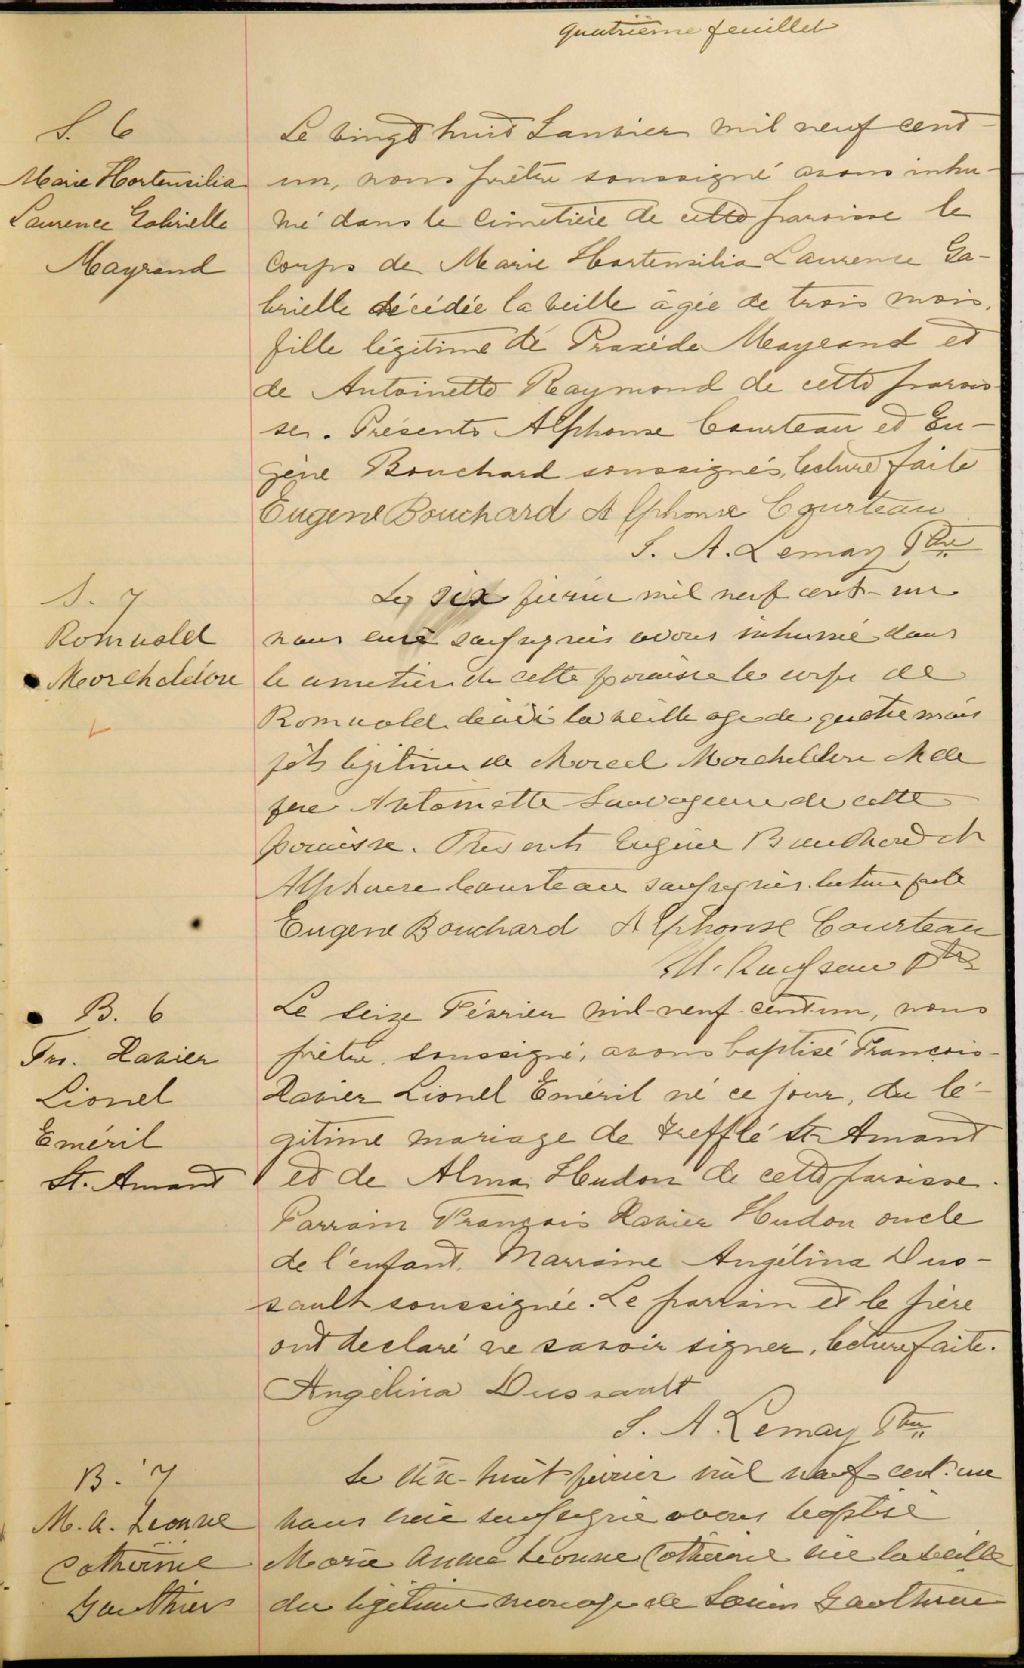 quatrième feuillet
S. 6
Marie Hortensilia
Laurence Gabrielle
Mayrand
Le vingt huit Janvier mil neuf cent-
un, nous prêtre soussigné avons inhu-
mé dans le cimetière de cette paroisse le
corps de Marie Hortensilia Laurence Ga-
brielle décédée la veille âgée de trois mois,
fille légitime de Praxède Mayrand et
de Antoinette Raymond de cette parois-
se. Présents Alphonse Courteau et Eu-
gène Bouchard soussignés, lecture faite
Eugene Bouchard Alphonse Courteau
J. A. Lemay Ptre
S. 7
Romuald
Morcheldon
Le six février mil neuf cent-un
nous curé soussigné avons inhumé dans
le cimetière de cette paroisse le corps de
Romuald décédé la veille age de quatre mois
fils légitime de Morcel Morcheldon et de
feue Antoinette Sauvageau de cette
paroisse. Presents Eugène Bouchard et
Alphonse Courteau soussignés. lecture faite
Eugene Bouchard Alphonse Courteau
Ptre
B. 6
Frs. Xavier
Lionel
Eméril
St. Amant
Le seize Février mil-neuf-cent-un, nous
prêtre soussigné, avons baptisé François-
Xavier Lionel Eméril né ce jour, du lé-
gitime mariage de Trefflé St-Amant
et de Alma Hudon de cette paroisse.
Parrain François Xavier Hudon oncle
de l'enfant, Marraine Angélina Dus-
sault soussignée. Le parrain et le père
ont declaré ne savoir signer, lecture faite.
Angélina Dussault
J. A. Lemay Ptre
B. 7
M. A. Leonne
Catherine
Gauthier
Le dix-huit février mil neuf cent-un
nous curé soussigné avons baptisé
Marie Anna Léonne Catherine née la veille
du légitime mariage de Louis Gauthier